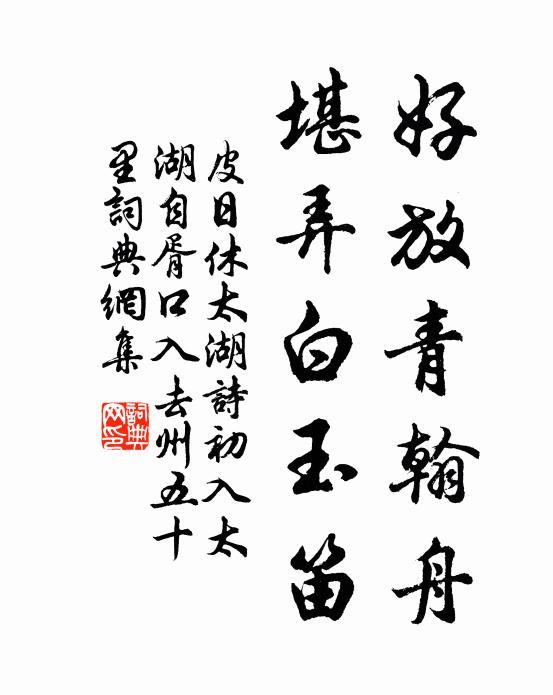 好放青翰舟
堪弄白玉笛
皮日休太湖詩初入太
湖自胥口入去州五十
里詞典網集
詞典网印